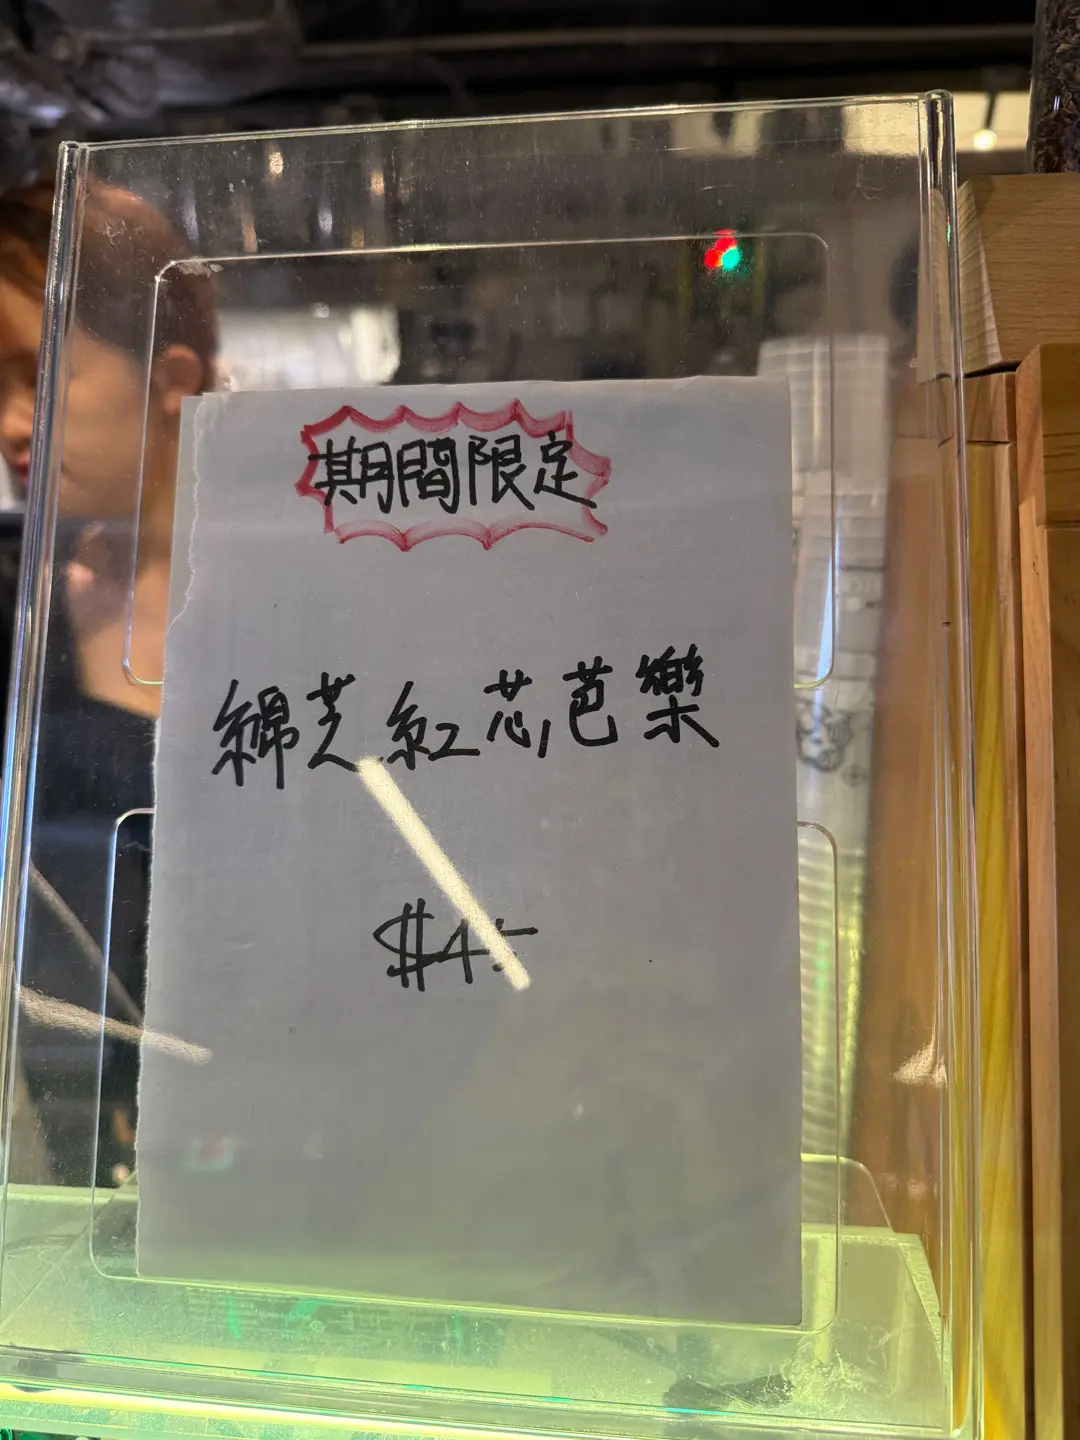 期間限定
綿芝紅芯芭樂
$45